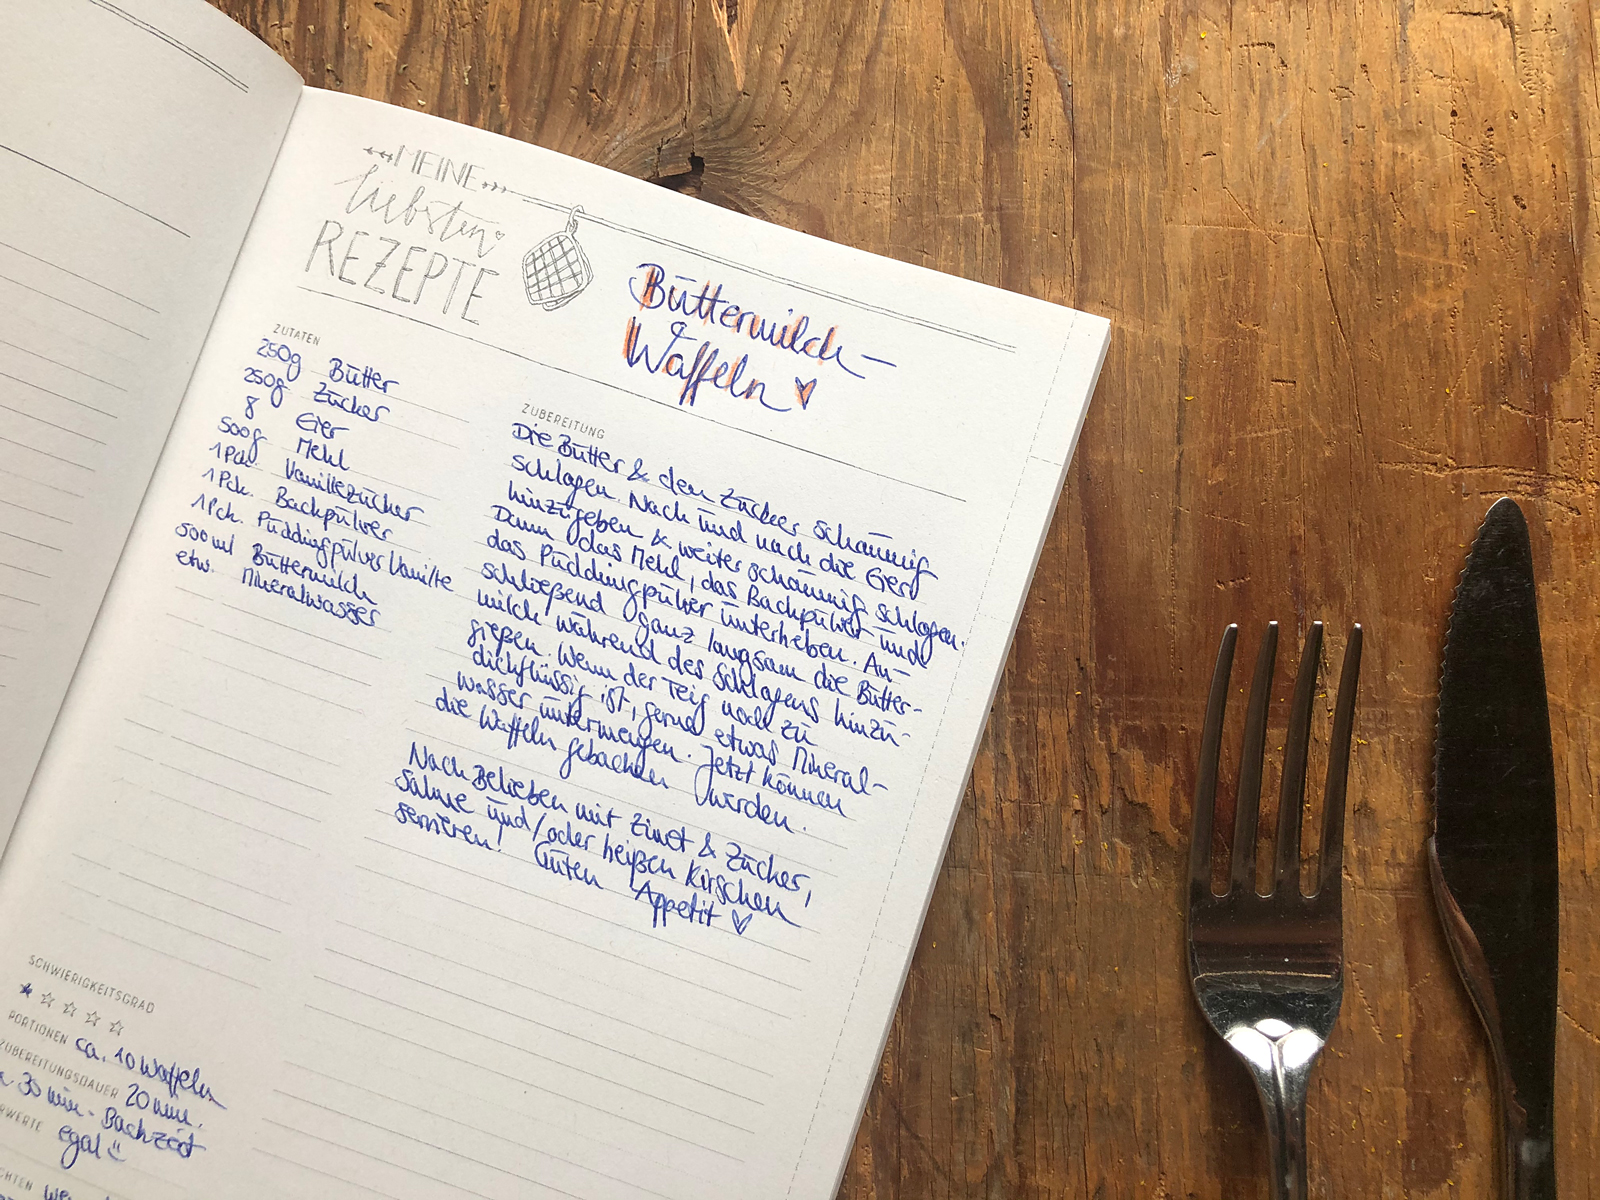 MEINE
liebsten
REZEPTE
Buttermilch-
Waffeln
ZUTATEN
250g Butter
250g Zucker
8 Eier
500g Mehl
1 Pck. Vanillezucker
1 Pck. Backpulver
1 Pck. Puddingpulver Vanille
500 ml Buttermilch
etw. Mineralwasser
ZUBEREITUNG
Die Butter & den Zucker schaumig
schlagen. Nach und nach die Eier
hinzugeben & weiter schaumig schlagen.
Dann das Mehl, das Backpulver und
das Puddingpulver unterheben. An-
schließend ganz langsam die Butter-
milch während des Schlagens hinzu-
gießen. Wenn der Teig noch zu
dickflüssig ist, gerne etwas Mineral-
wasser untermengen. Jetzt können
die Waffeln gebacken werden.
Nach Belieben mit Zimt & Zucker,
Sahne und/oder heißen Kirschen
servieren! Guten
Appetit
SCHWIERIGKEITSGRAD
PORTIONEN ca. 10 Waffeln
ZUBEREITUNGSDAUER 20 min.
30 min. Backzeit
egal